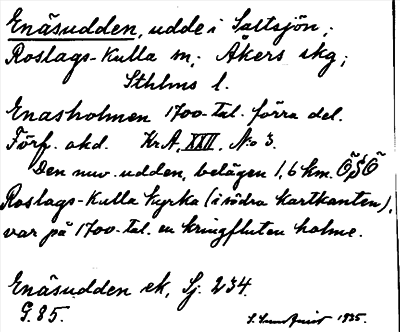 Enäsudden, udde i Saltsjön,
Roslags-Kulla sn; Åkers skg;
Sthlms l.
Enasholmen 1700-tal. förra del.
Förf. okd. Kr.A. XXII. No 3.
Den nuv. udden, belägen 1,6 km. ÖSÖ
Roslags-Kulla kyrka (i södra kartkanten),
var på 1700-tal. en kringfluten holme.
Enäsudden ek, Sj. 234.
G. 85.
1935.